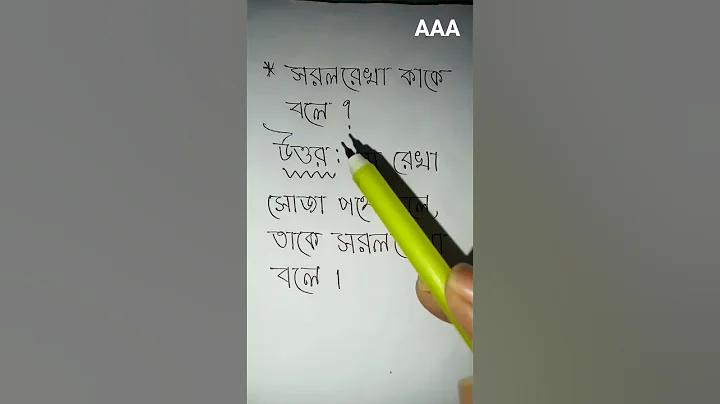 AAA
* সরলরেখা কাকে
বলে ?
উত্তর : রেখা
সোজা
তাকে
বলে ।